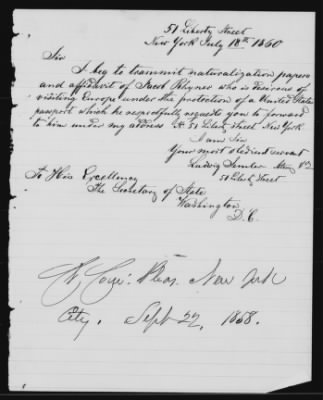 51 Liberty Street
New York July 18th 1860
Sir
I beg to transmit naturalization papers
and affidavit of Jacob Rhyner who is desirous of
visiting Europe under the protection of a United States
passport which he respectfully requests you to forward
to him under my address No 51 Liberty Street New York
I am Sir
Your most obedient servant
Ludwig Semler
51 Liberty Street
To His Excellency
The Secretary of State
Washington
D.C.
Com: Pleas. New York
City. Sept 22, 1858.